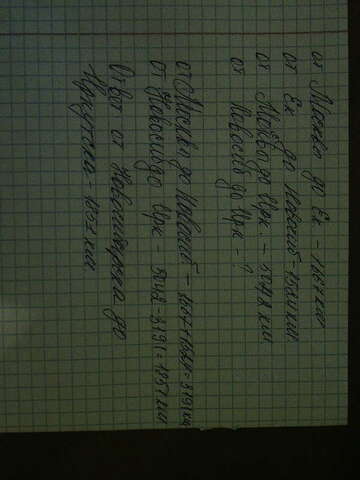 от Москвы до Ек – 1667 км
от Ек до Новосиб – 1524 км
от Москвы до Ирк – 5048 км
от Новосиб до Ирк – ?
от Москвы до Новосиб – 1667+1524=3191 км
от Новосиб до Ирк – 5048–3191=1857 км
Ответ от Новосибирска до
Иркутска – 1857 км